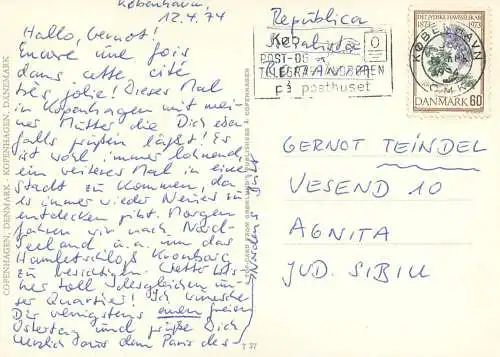 København,
12.4.74
Hallo, Gernot!
Encore une fois
dans cette cité
très jolie! Dieses Mal
in Kopenhagen mit mei-
ner Mutter die Dich eben
falls grüßen läßt! Es
ist wohl immer lohnend
ein weiteres Mal in eine
Stadt zu kommen, da
es immer wieder Neues zu
entdecken gibt. Morgen
fahren wir nach Nord-
Seeland u.a. um das
Hamletschloß Kronborg
zu besichtigen. Wetter bis-
her toll desgleichen un-
ser Quartier! Ich wünsche
Dir wenigstens einen freien
Ostertag und grüße Dich
herzlich aus dem Paris des
Nordens
COPENHAGEN, DENMARK - KOPENHAGEN, DÄNEMARK
COPENHAGEN
T 37
República
KØB
POST-OG
TELEGRAFVANDBOREN
på posthuset
DET JYDSKE HAVESELSKAB
1873 1973
DANMARK 60
KØBENHAVN
OMK
GERNOT TEINDEL
VESEND 10
AGNITA
JUD. SIBIU